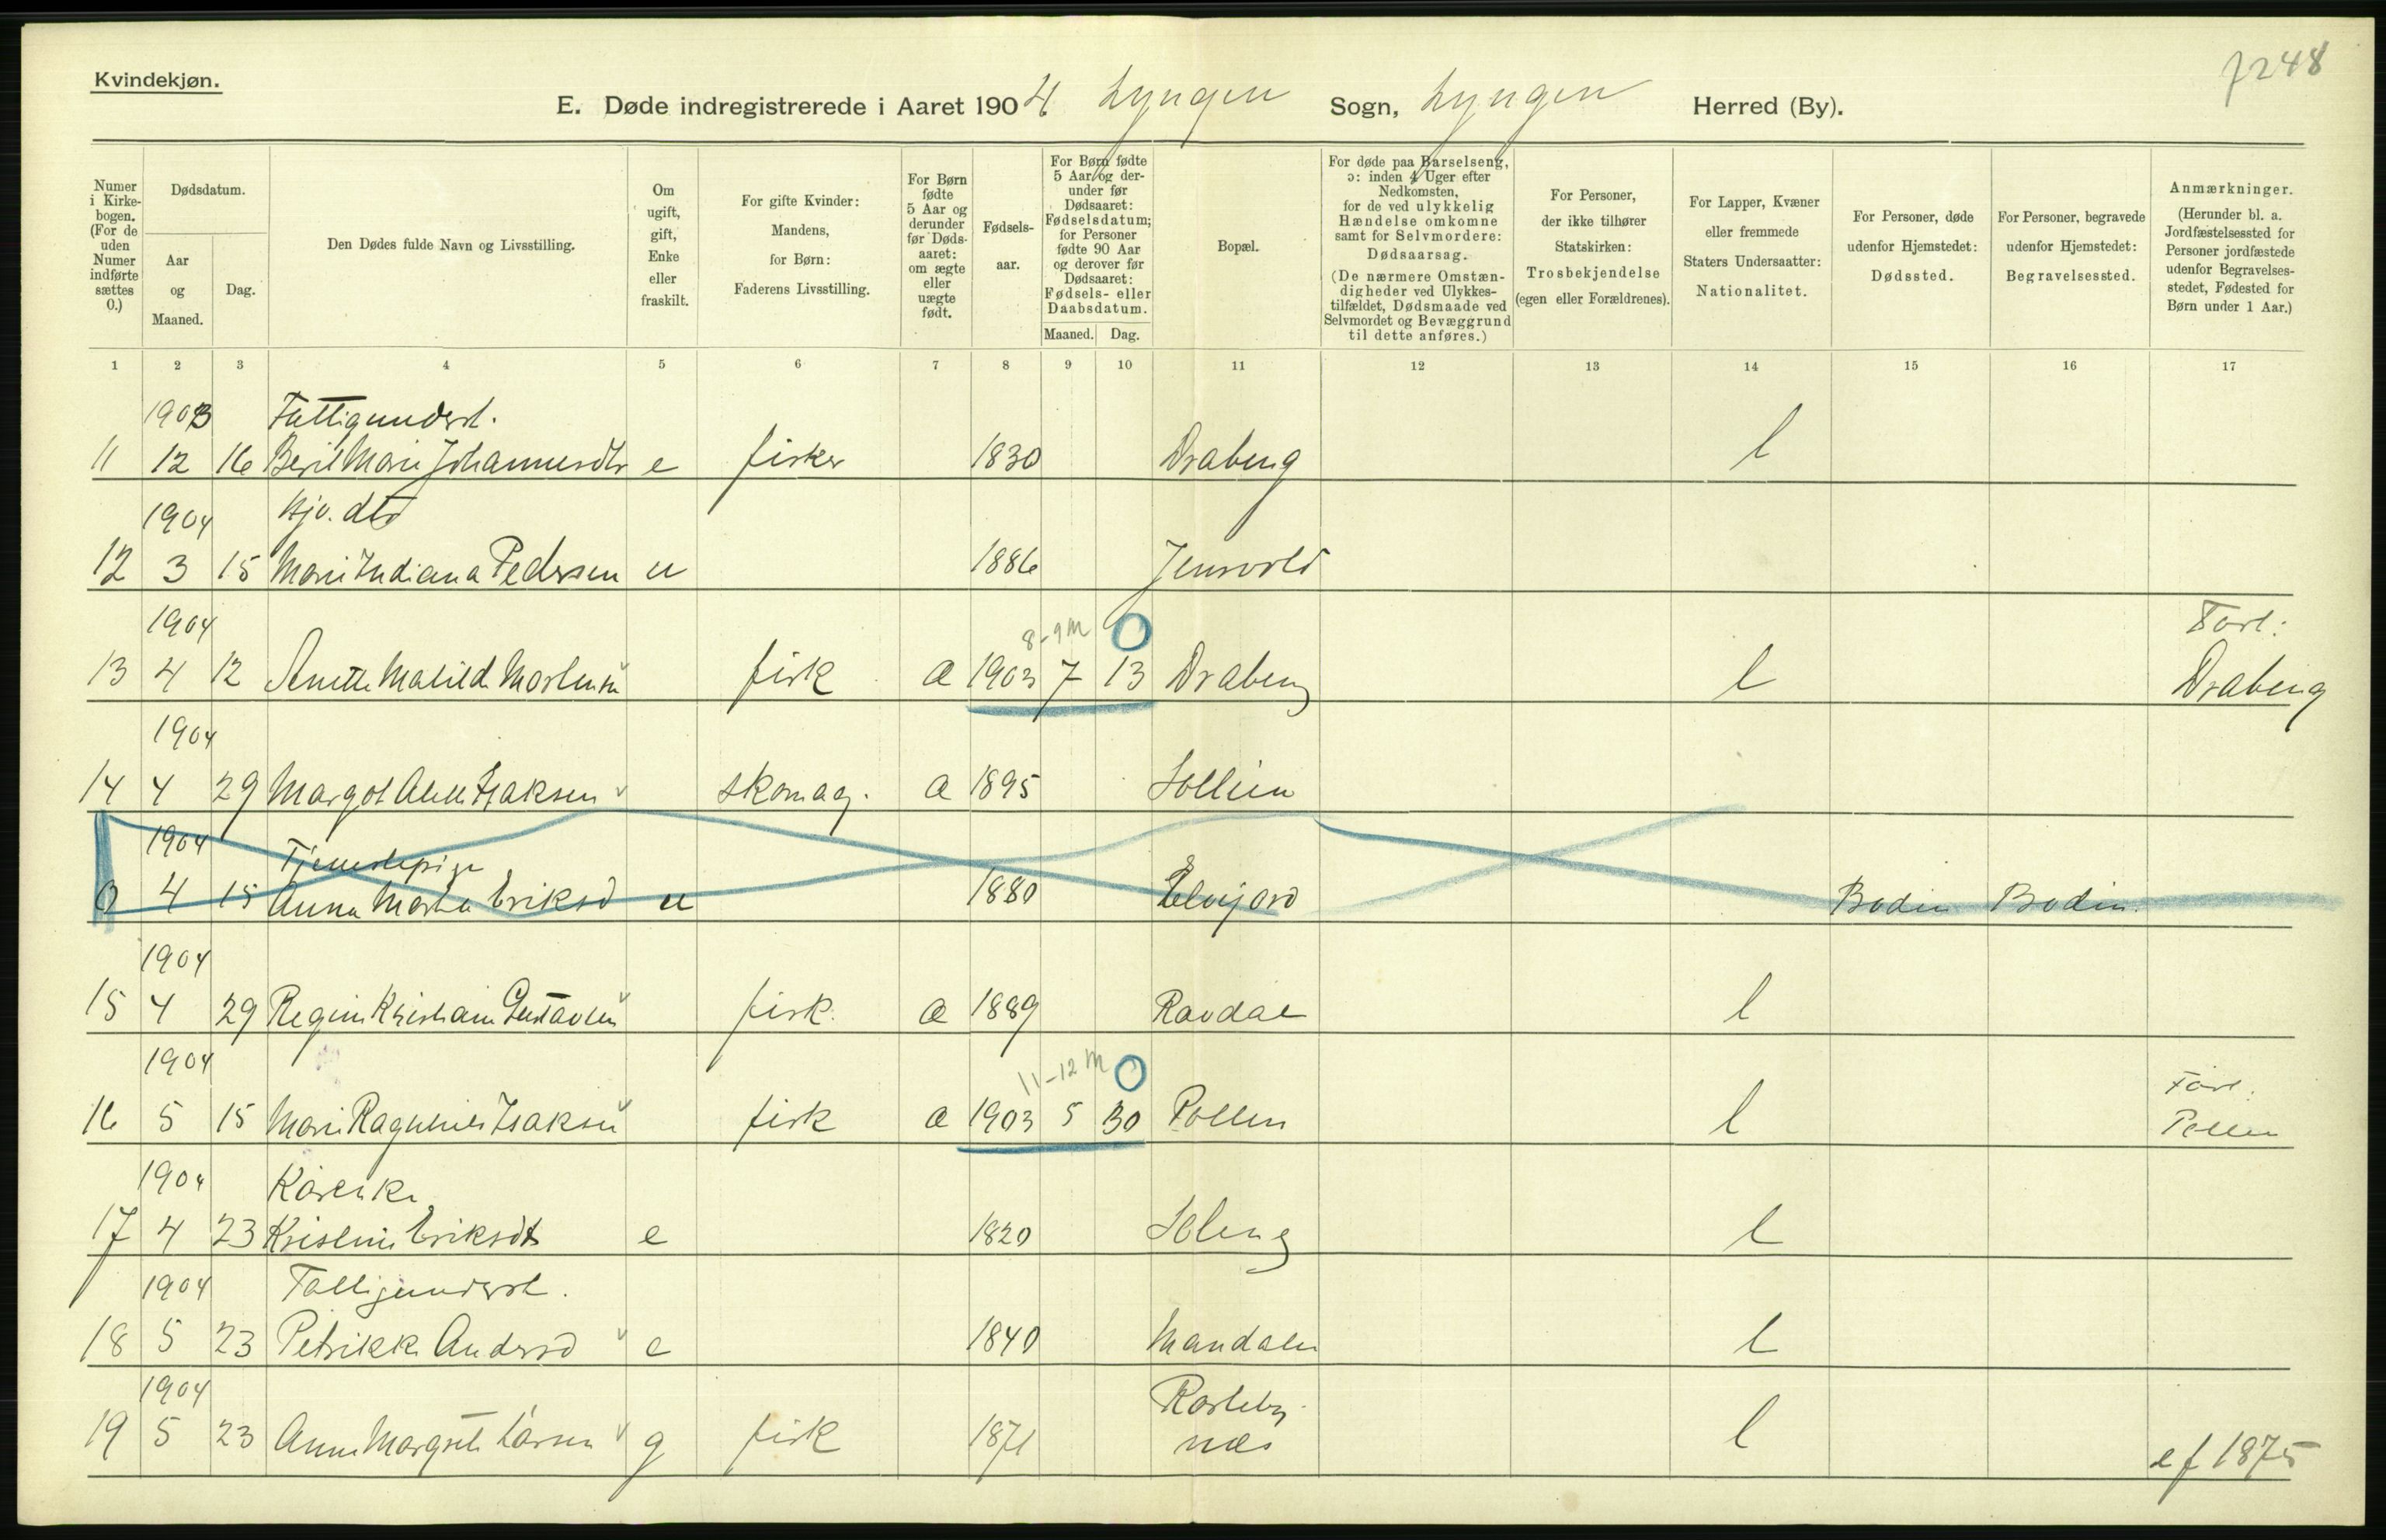 7248
Kvindekjøn.
E. Døde indregistrerede i Aaret 1904 Lyngen Sogn, Lyngen Herred (By).
Numer i Kirkebogen. (For de uden Numer indførte sættes 0.)
Dødsdatum.
Aar og Maaned.
Dag.
Den Dødes fulde Navn og Livsstilling.
Om ugift, gift, Enke eller fraskilt.
For gifte Kvinder: Mandens, for Børn: Faderens Livsstilling.
For Børn fødte 5 Aar og derunder før Dødsaaret: om ægte eller uægte født.
Fødselsaar.
For Børn fødte 5 Aar og derunder før Dødsaaret: Fødselsdatum; for Personer fødte 90 Aar og derover før Dødsaaret: Fødsels- eller Daabsdatum.
Maaned. Dag.
Bopæl.
For døde paa Barselseng, ɔ: inden 4 Uger efter Nedkomsten, for de ved ulykkelig Hændelse omkomne samt for Selvmordere: Dødsaarsag.
(De nærmere Omstændigheder ved Ulykkestilfældet, Dødsmaade ved Selvmordet og Bevæggrund til dette anføres.)
For Personer, der ikke tilhører Statskirken: Trosbekjendelse (egen eller Forældrenes).
For Lapper, Kvæner eller fremmede Staters Undersaatter: Nationalitet.
For Personer, døde udenfor Hjemstedet: Dødssted.
For Personer, begravede udenfor Hjemstedet: Begravelsessted.
Anmærkninger.
(Herunder bl. a. Jordfæstelsessted for Personer jordfæstede udenfor Begravelsesstedet, Fødested for Børn under 1 Aar.)
1 2 3 4 5 6 7 8 9 10 11 12 13 14 15 16 17
1903 Fattigunderst.
11 12 16 Berit Marie Johannesdtr e fisker 1830 Draberg l
1904 Gjv. dtr
12 3 15 Marie Indiana Pedersen u 1886 Jensvold
1904 8-9 M Førl:
13 4 12 Anette Matilde Mortensen fisk æ 1903 7 13 Draberg l Draberg
1904
14 4 29 Margot Isaksen skomag. æ 1895
1904 Tjenestepige
0 4 15 Anna Martha Eriksd u 1880 Elvejord Bodin Bodin.
1904
15 4 29 Kristiane Gustavsen fisk. æ 1889 l
1904 11-12 M Førl:
16 5 15 Marie Ragnhild Isaksen fisk æ 1903 5 30 Pollen l Pollen
1904
17 4 23 Kristine Eriksdtr e 1820 l
1904 Fattigunderst.
18 5 23 Petrikke Andersd e 1840 Mandalen l
1904
19 5 23 Anne Margrete Larsen g fisk 1871 næs l ef 1875